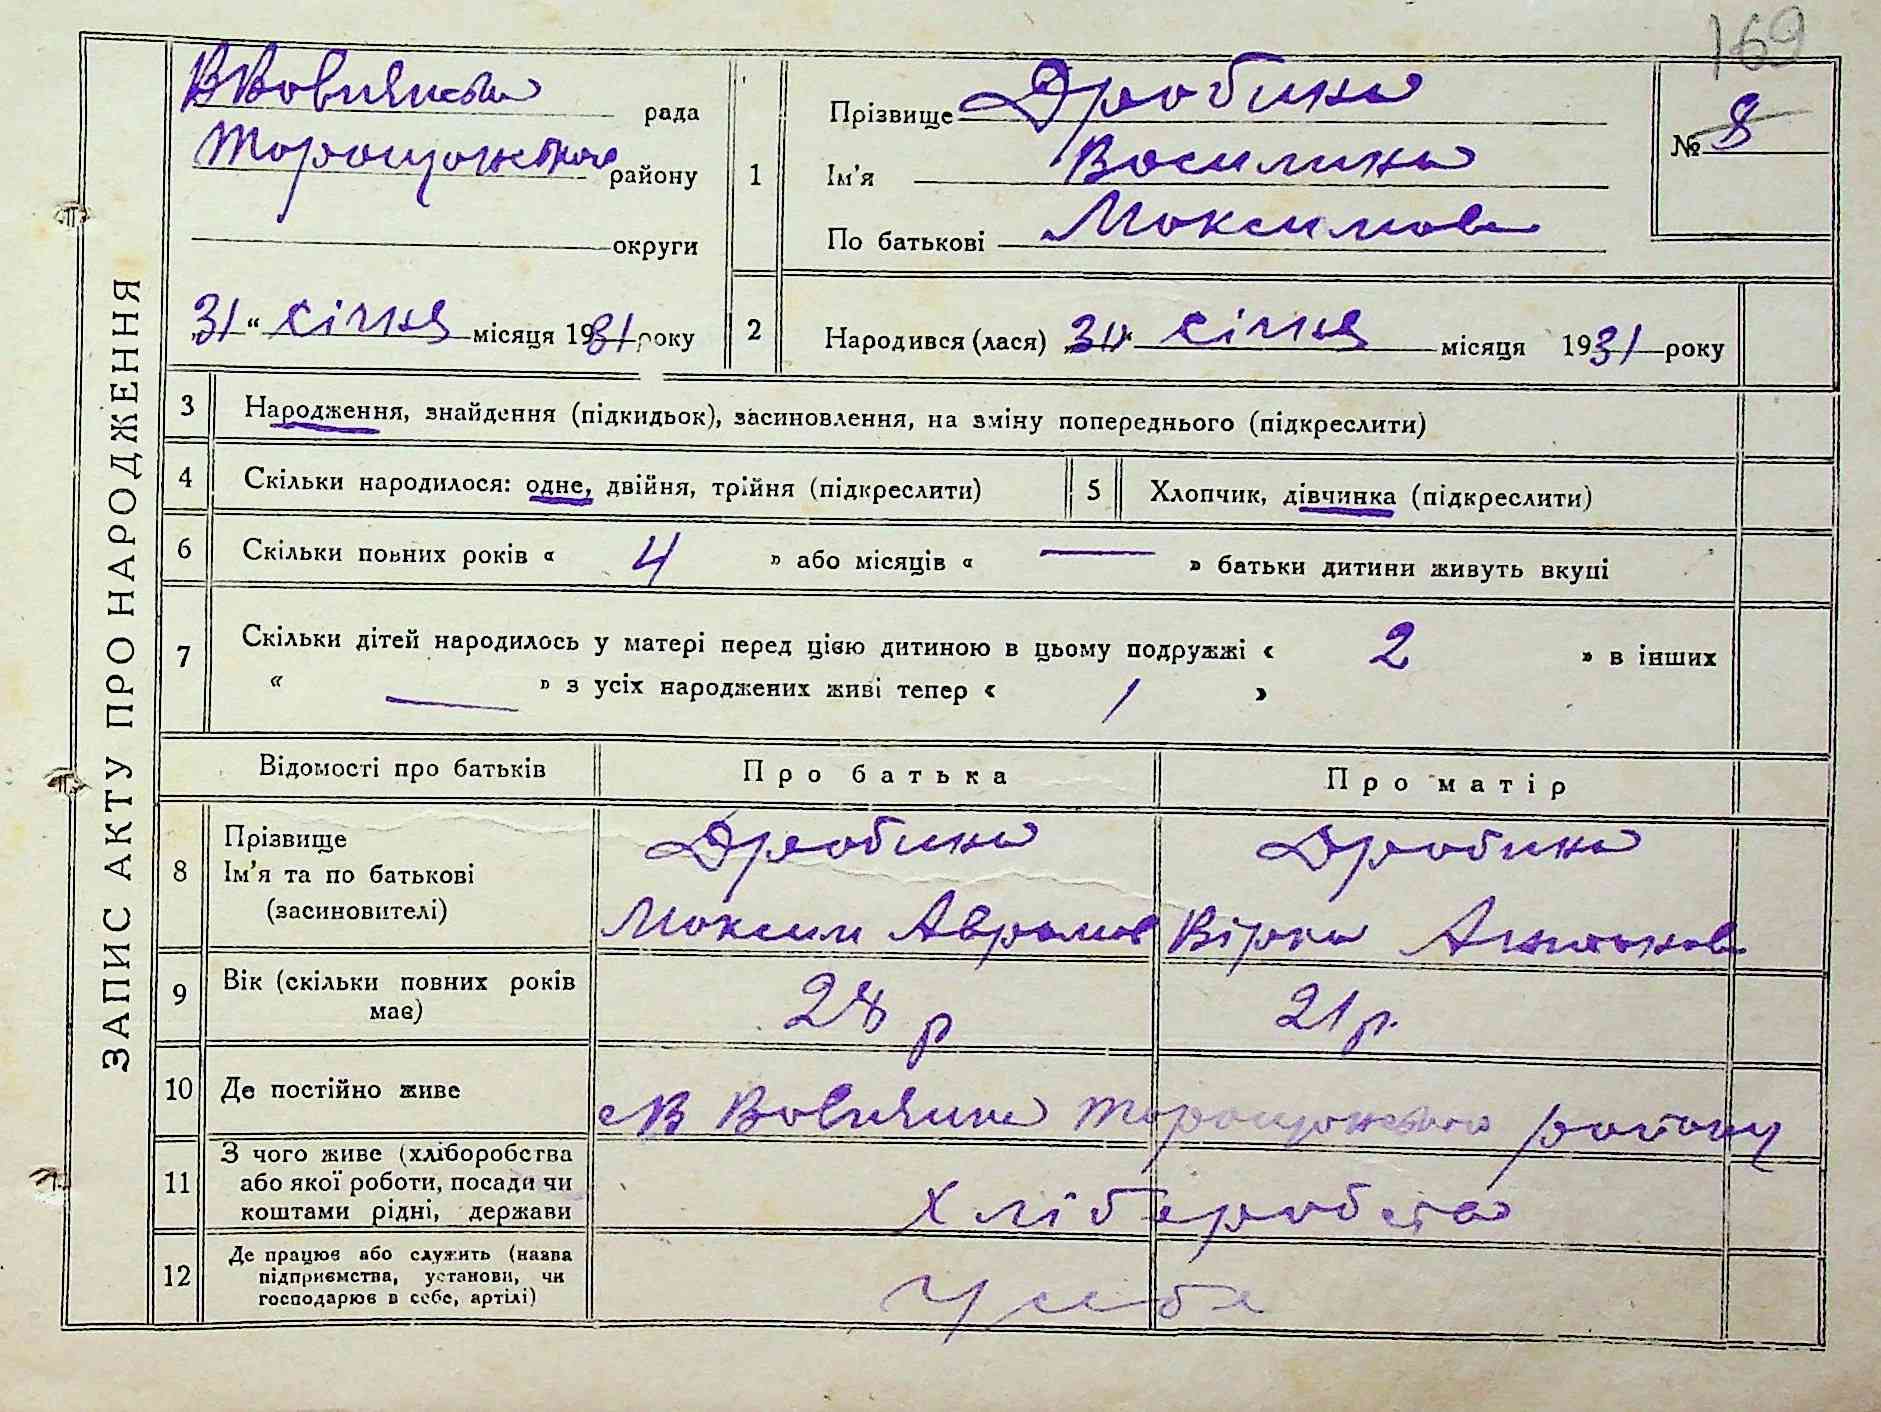 169
ЗАПИС АКТУ ПРО НАРОДЖЕННЯ
ВВовнянська рада
Торащанського району
округи
31 “ січня місяця 1931 року
1
Прізвище Дробина
Ім'я Василина
По батькові Максимов
№ 8
2
Народився (лася) „31“ січня місяця 1931 року
3 Народження, знайдення (підкидьок), засиновлення, на зміну попереднього (підкреслити)
4 Скільки народилося: одне, двійня, трійня (підкреслити)
5 Хлопчик, дівчинка (підкреслити)
6 Скільки повних років « 4 » або місяців « — » батьки дитини живуть вкупі
7 Скільки дітей народилось у матері перед цією дитиною в цьому подружжі « 2 » в інших
« — » з усіх народжених живі тепер « 1 »
Відомості про батьків Про батька Про матір
8 Прізвище
Ім'я та по батькові
(засиновителі)
Дробина
Максим Аврамов
Дробина
Вірка Антонов
9 Вік (скільки повних років
має)
28 р
21 р.
10 Де постійно живе
с В Вовнянка Торащанського району
11 З чого живе (хліборобства
або якої роботи, посади чи
коштами рідні, держави
Хліберобства
12 Де працює або служить (назва
підприємства, установи, чи
господарює в себе, артілі)
У себе